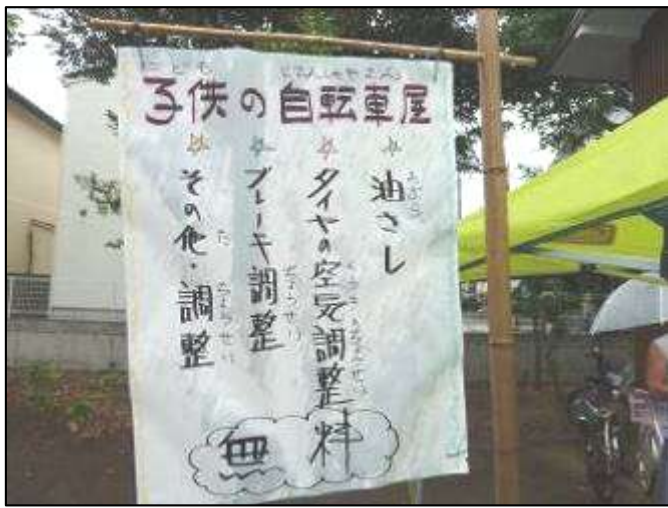 子供の自転車屋
☆油さし
☆タイヤの空気調整
☆ブレーキ調整
☆その他・調整
無料